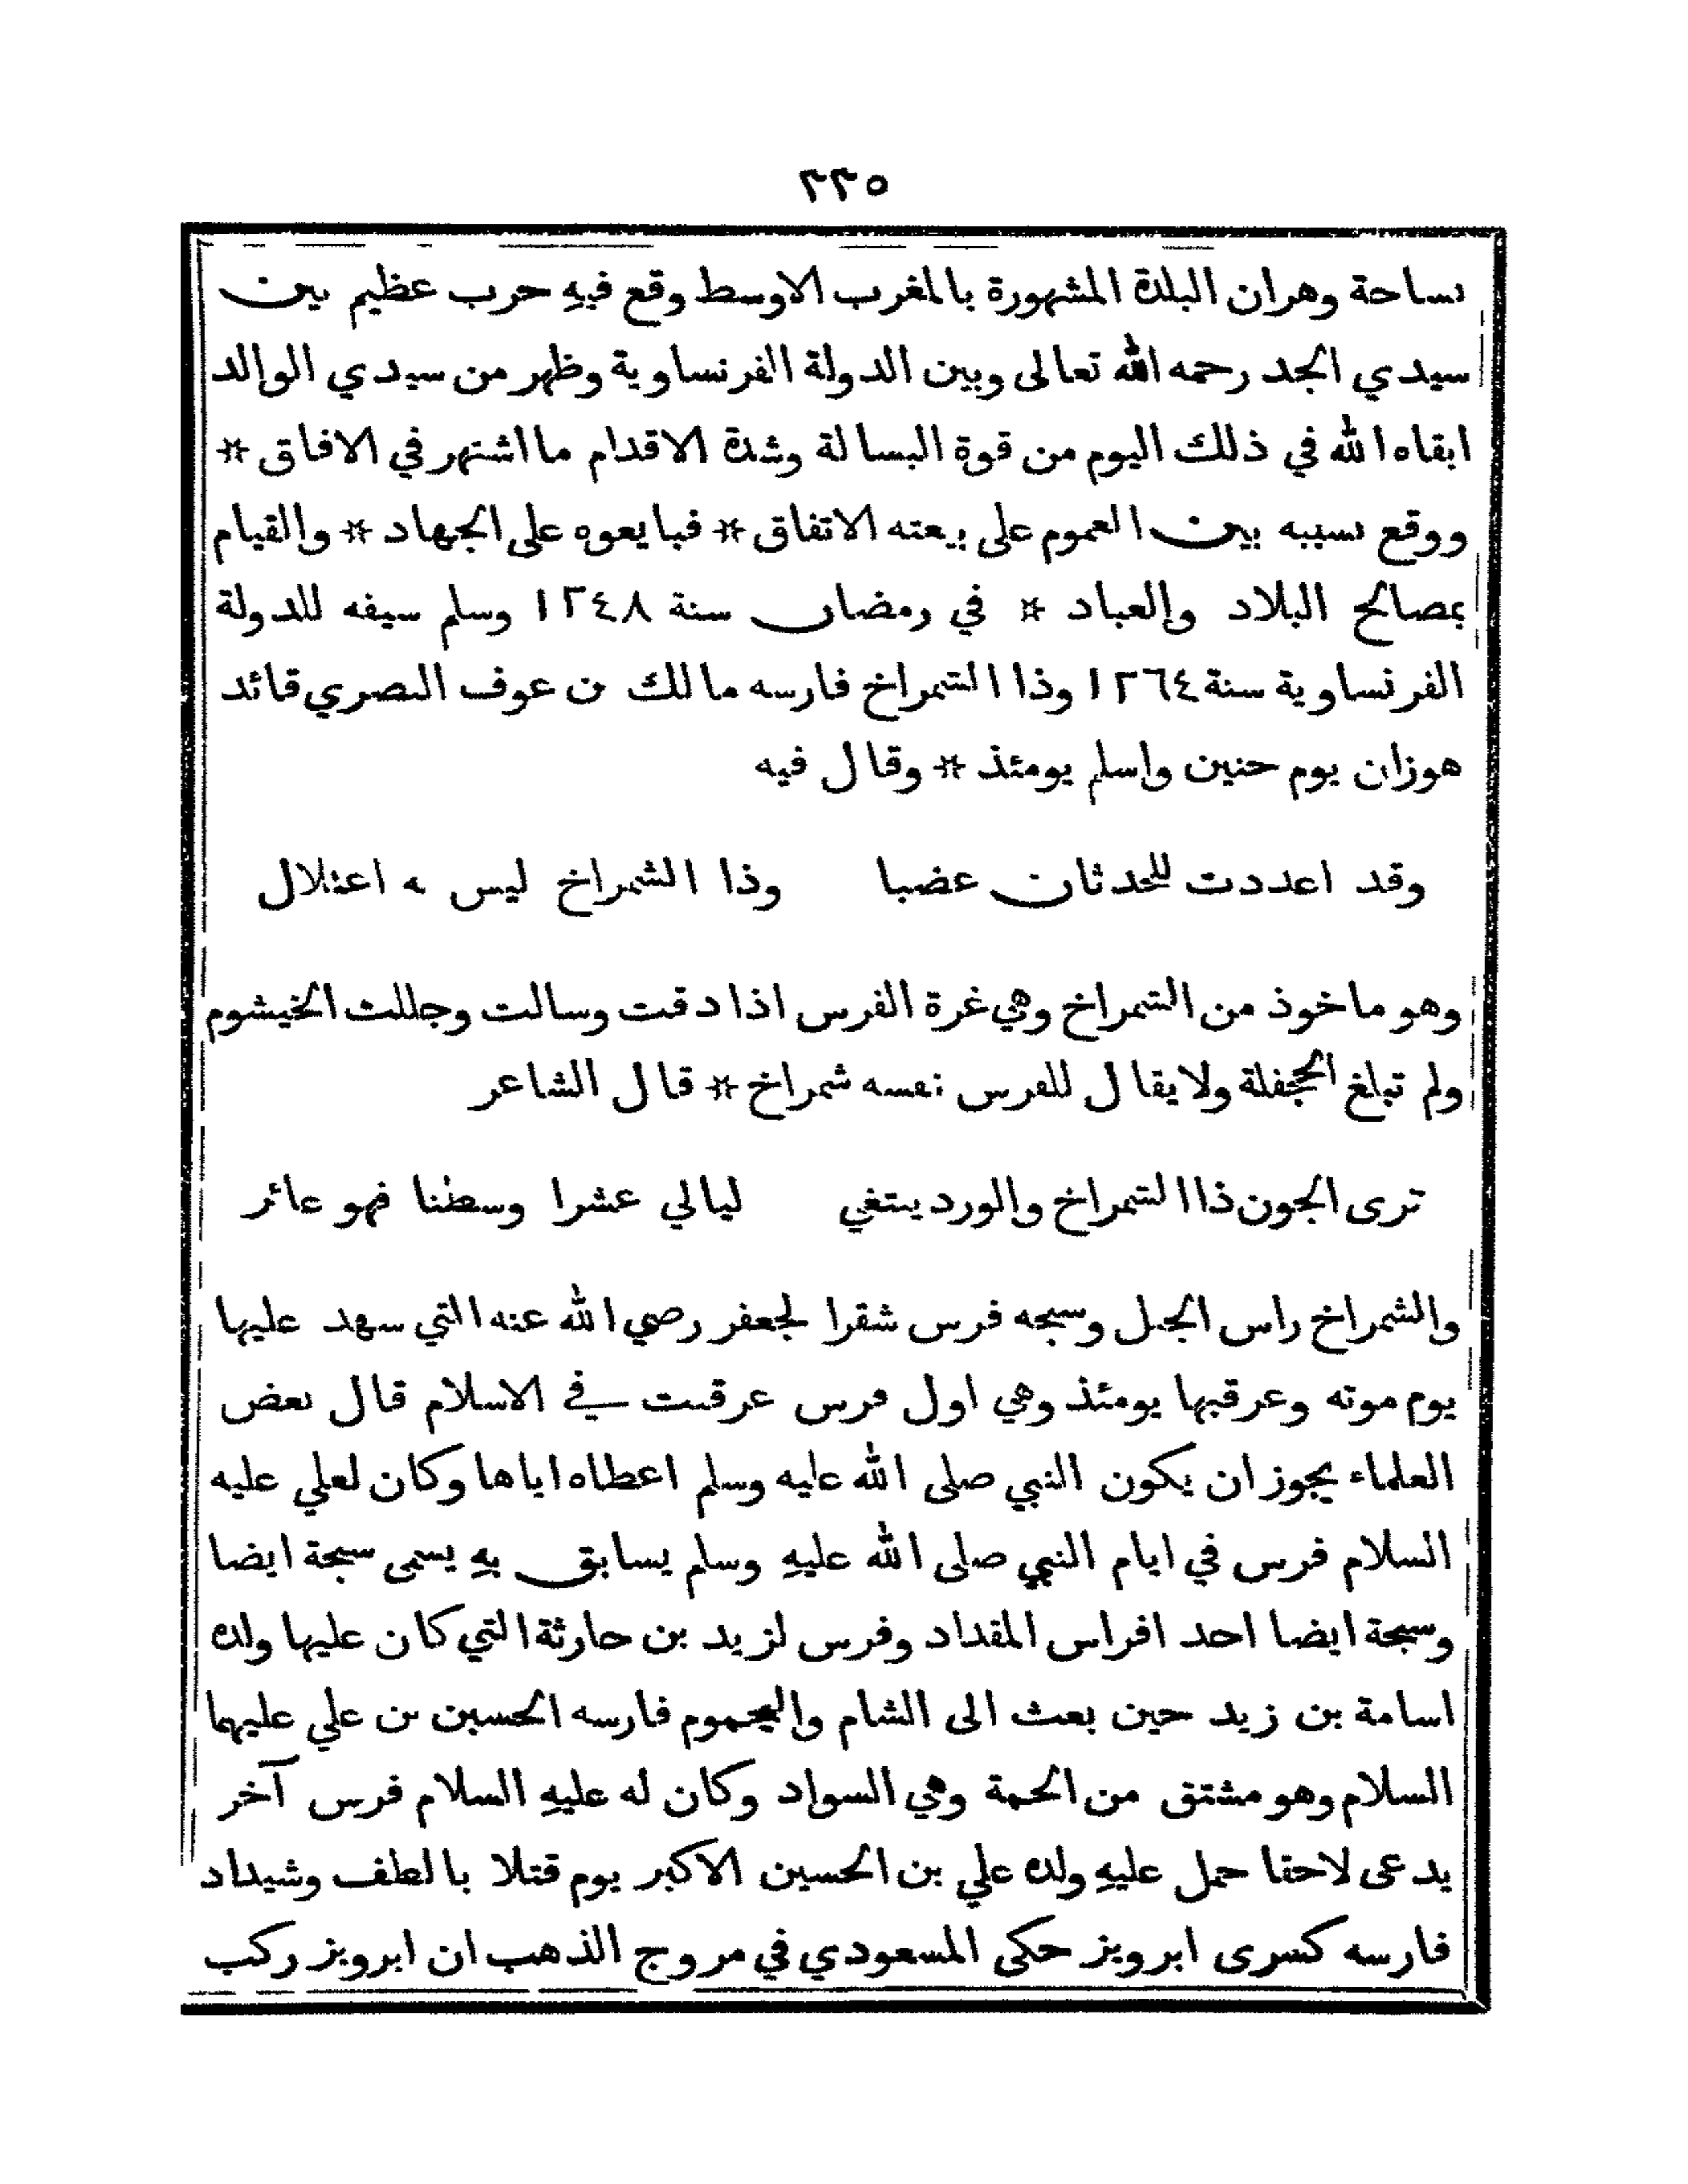 ٢٢٥
بساحة وهران البلدة المشهورة بالمغرب الاوسط وقع فيهِ حرب عظيم بين
سيدي الجد رحمه الله تعالى وبين الدولة الفرنساوية وظهر من سيدي الوالد
ابقاه الله في ذلك اليوم من قوة البسالة وشدة الاقدام ما اشتهر في الافاق *
ووقع بسببه بين العموم على بيعته الاتفاق * فبايعوه على الجهاد * والقيام
بمصالح البلاد والعباد * في رمضان سنة ١٢٤٨ وسلم سيفه للدولة
الفرنساوية سنة ١٢٦٤ وذا الشمراخ فارسه مالك بن عوف النصري قائد
هوزان يوم حنين واسلم يومئذ * وقال فيه
وقد اعددت للحدثان عضبا وذا الشمراخ ليس به اعتلال
وهو ماخوذ من الشمراخ وهي غرة الفرس اذا دقت وسالت وجللت الخيشوم
ولم تبلغ الجحفلة ولا يقال للفرس نفسه شمراخ * قال الشاعر
ترى الجون ذا الشمراخ والورد يبتغي ليالي عشرا وسطنا فهو عائر
والشمراخ راس الجبل وسبحه فرس شقرا لجعفر رضي الله عنه التي شهد عليها
يوم موته وعرقبها يومئذ وهي اول فرس عرقبت في الاسلام قال بعض
العلماء يجوز ان يكون النبي صلى الله عليه وسلم اعطاه اياها وكان لعلي عليه
السلام فرس في ايام النبي صلى الله عليهِ وسلم يسابق بهِ يسمى سبحة ايضا
وسبحة ايضا احد افراس المقداد وفرس لزيد بن حارثة التي كان عليها ولده
اسامة بن زيد حين بعث الى الشام واليحموم فارسه الحسين بن علي عليهما
السلام وهو مشتق من الحمة وهي السواد وكان له عليهِ السلام فرس آخر
يدعى لاحقا حمل عليهِ ولده علي بن الحسين الاكبر يوم قتلا بالطف وشيداد
فارسه كسرى ابرويز حكى المسعودي في مروج الذهب ان ابرويز ركب